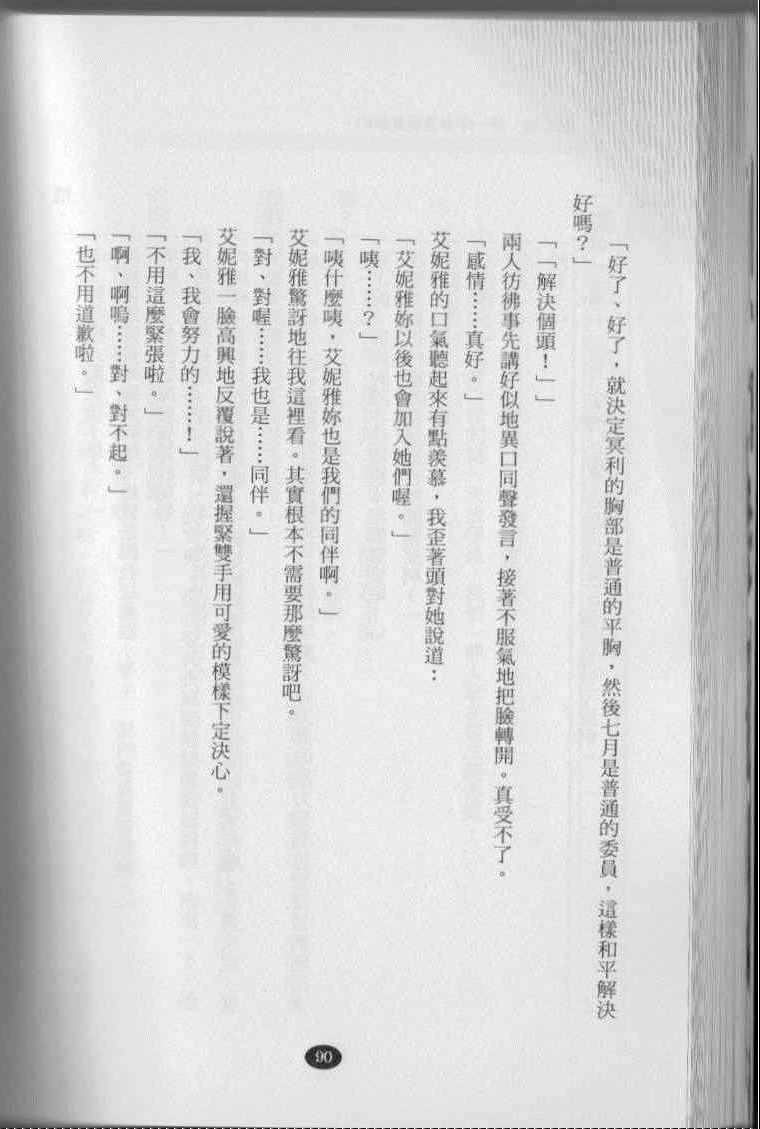 「好了、好了，就決定冥利的胸部是普通的平胸，然後七月是普通的委員，這樣和平解決
好嗎？」
「「解決個頭！」」
兩人彷彿事先講好似地異口同聲發言，接著不服氣地把臉轉開。真受不了。
「感情……真好。」
艾妮雅的口氣聽起來有點羨慕，我歪著頭對她說道：
「艾妮雅妳以後也會加入她們喔。」
「咦……？」
「咦什麼咦，艾妮雅妳也是我們的同伴啊。」
艾妮雅驚訝地往我這裡看。其實根本不需要那麼驚訝吧。
「對、對喔……我也是……同伴。」
艾妮雅一臉高興地反覆說著，還握緊雙手用可愛的模樣下定決心。
「我、我會努力的……！」
「不用這麼緊張啦。」
「啊、啊嗚……對、對不起。」
「也不用道歉啦。」
90